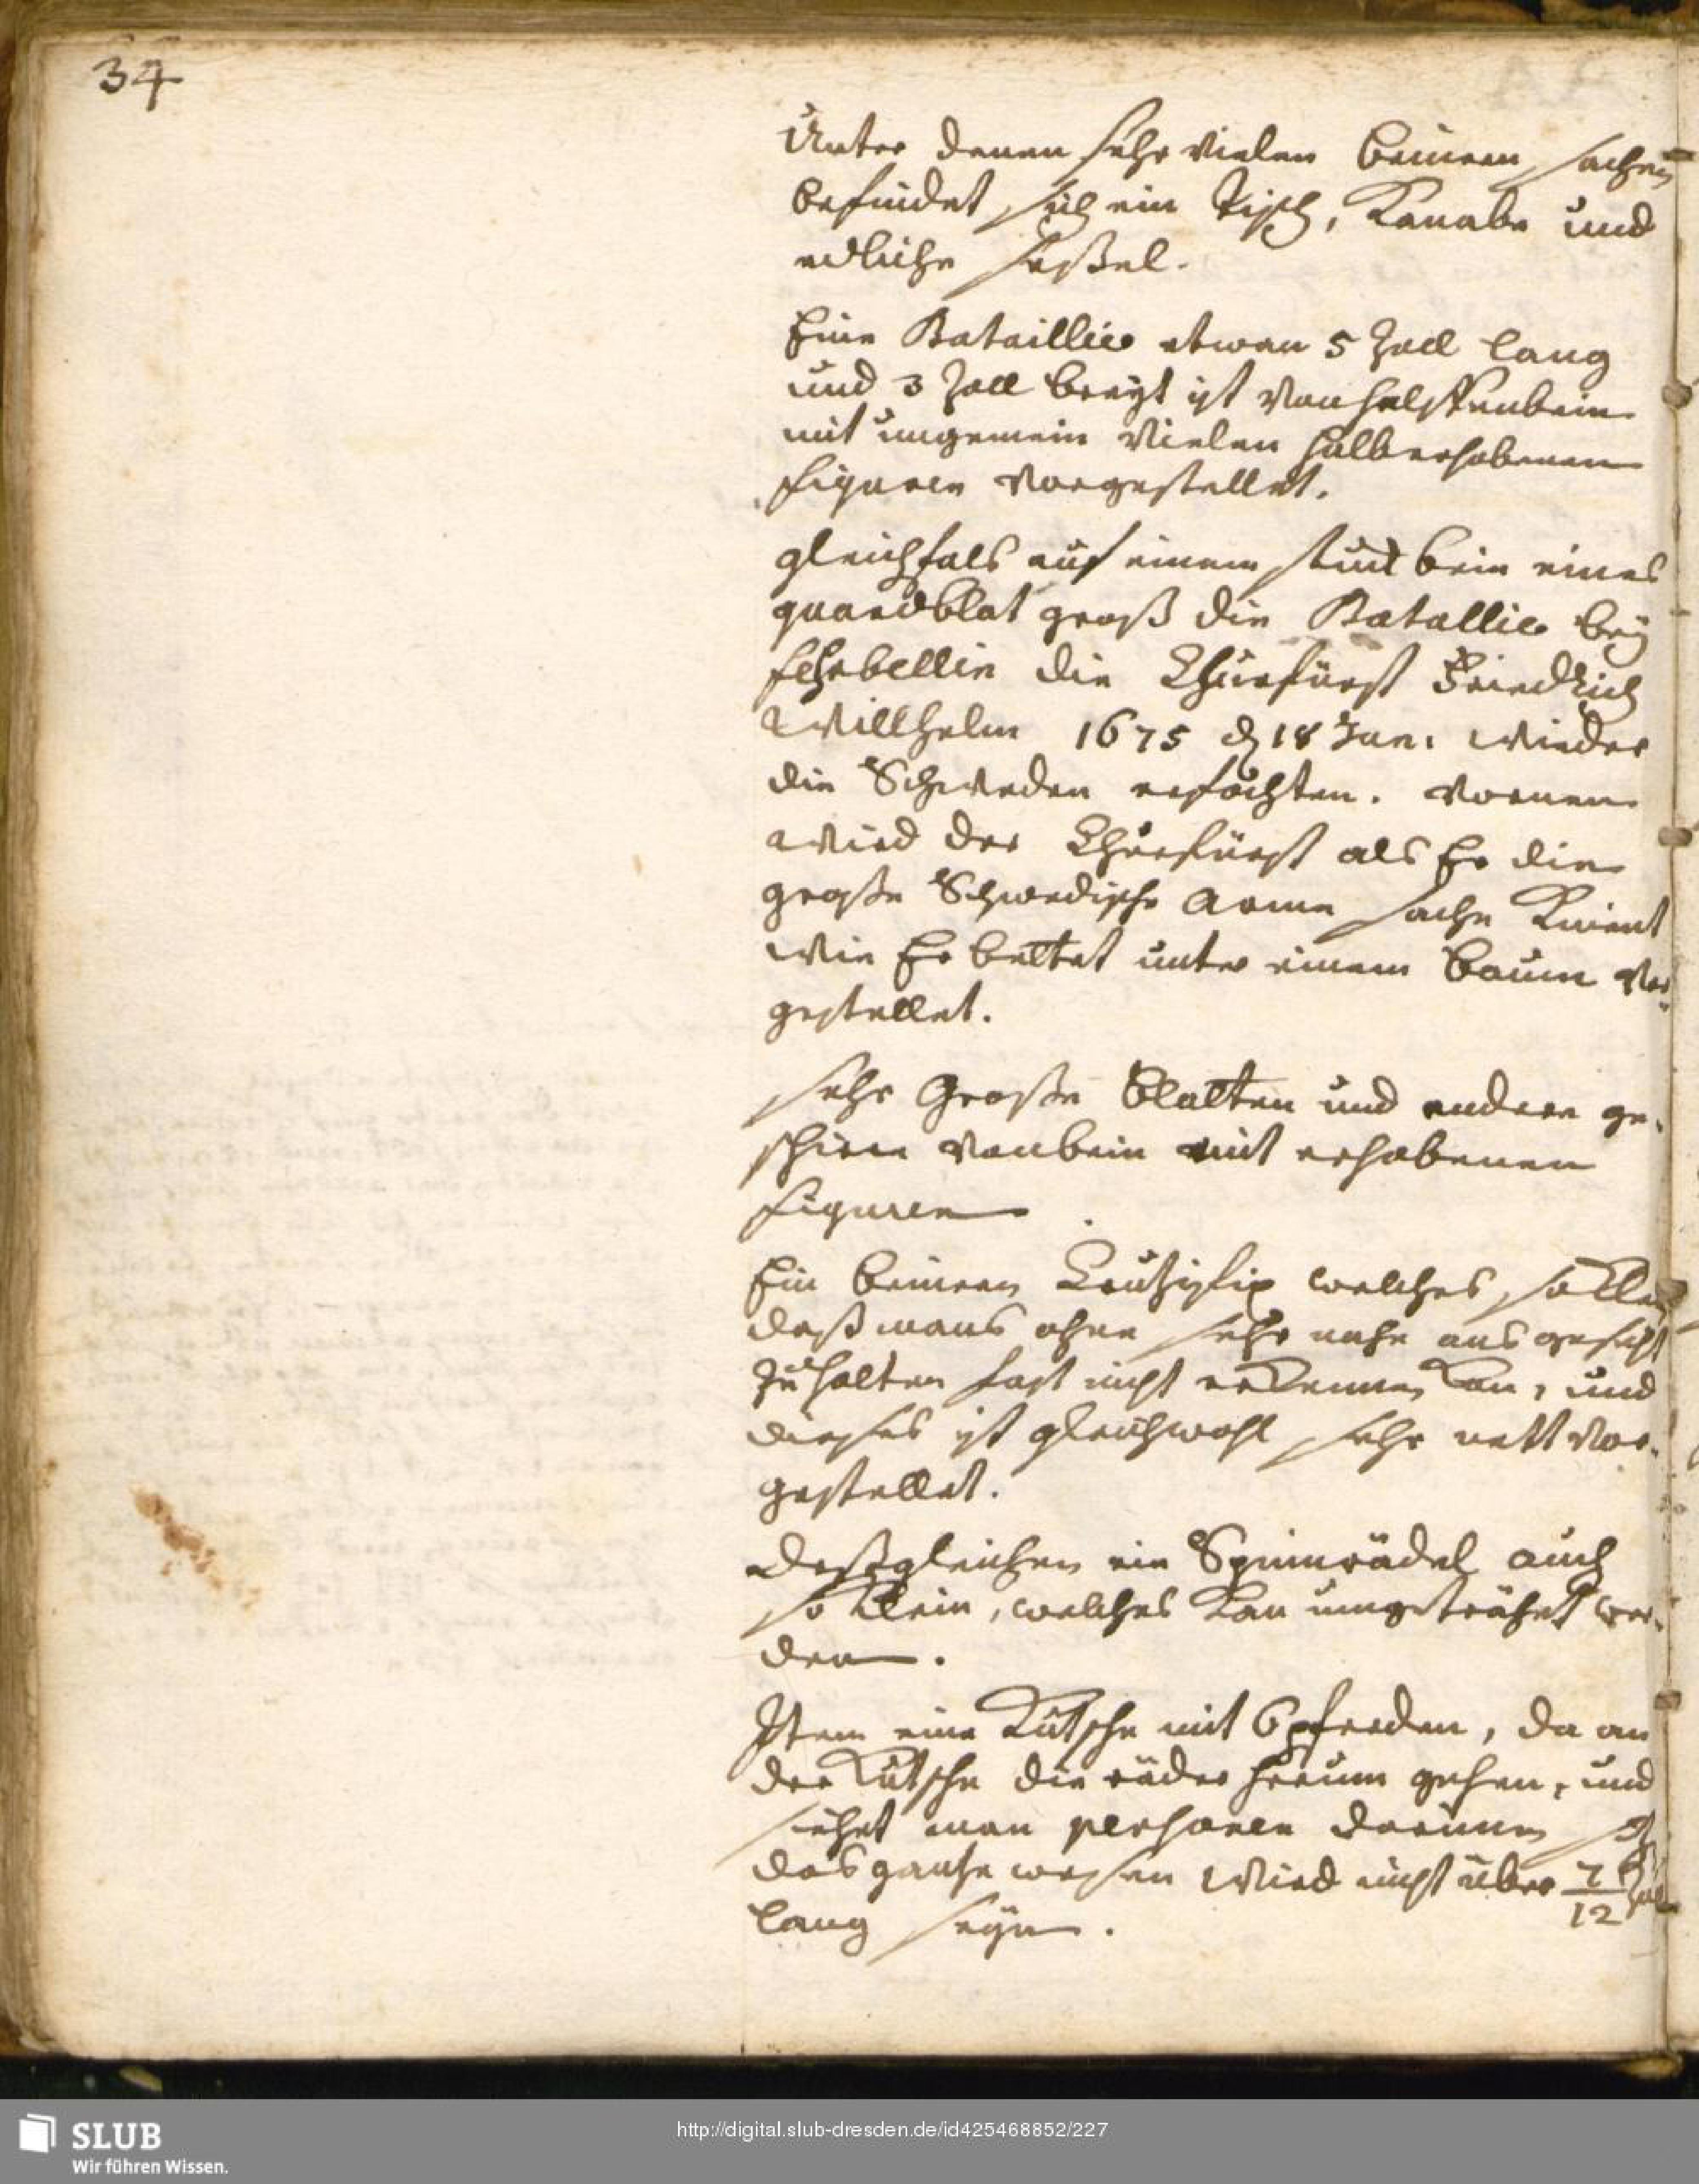 34
Unter denen sehr vielen beinern sachen
befindet sich ein Tisch, Kanabe und
edliche seßel.
Eine Bataillie etwan 5 Zoll lang
und 3 Zoll breyt ist von helffenbein
mit ungemein vielen halb erhobenen
figuren vorgestellet.
gleichfals auf einem stuck bein eines
quardblat groß die Batallie bey
fehrbellin die Churfürst Friedrich
Willhelm 1675 d 18 Jun. wieder
die Schweden erfochten. vornen
wird der Churfürst als Er die
große Schwedische Arme sache Knient
wie Er bettet unter einem baum vor¬
gestellet.
sehr Große blatten und andere ge¬
schirre von bein mit erhobenen
figuren
Ein beinern Crutzifix welches so klein
daß mans ohne sehr nahe ans gesicht
zu halten fast nicht erkennen kan, und
dieses ist gleichwohl sehr nett vor¬
gestellet.
Deßgleichen ein Spinrädel auch
so klein, welches kan umgeträhet wer¬
den.
Item eine Kutsche mit 6 pferden, da an
der Kutsche die räder herum gehen, und
siehet man personen darinnen
das gantze wesen wird nicht über 7/12 Zoll
lang seyn.
SLUB
Wir führen Wissen.
http://digital.slub-dresden.de/id425468852/227